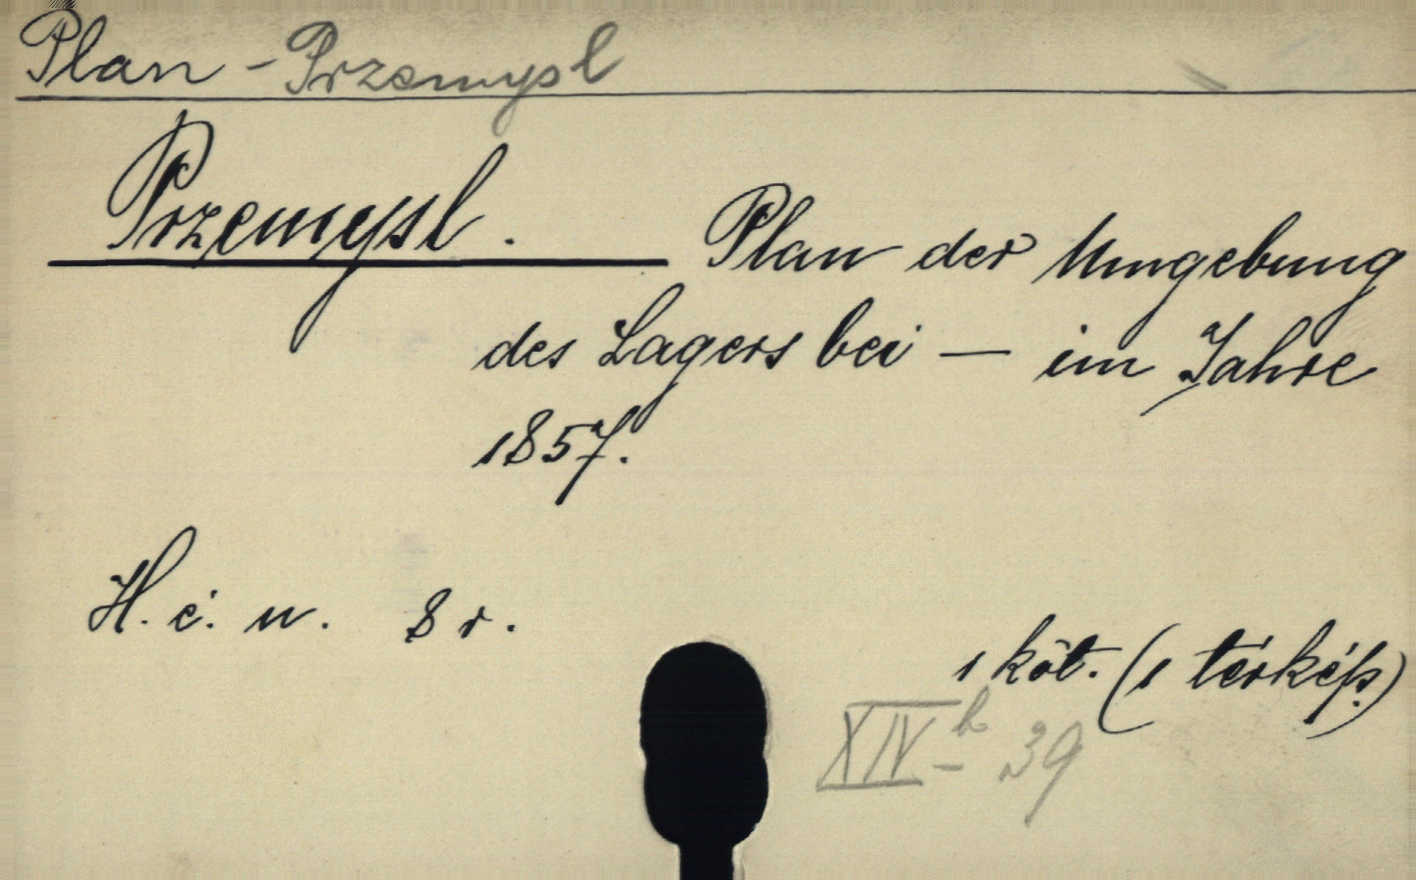 Plan - Przemysl
Przemysl. Plan der Umgebung
des Lagers bei — im Jahre
1857.
H. é. n. 8 r.
1 köt. (1 térkép.)
XIV h - 39